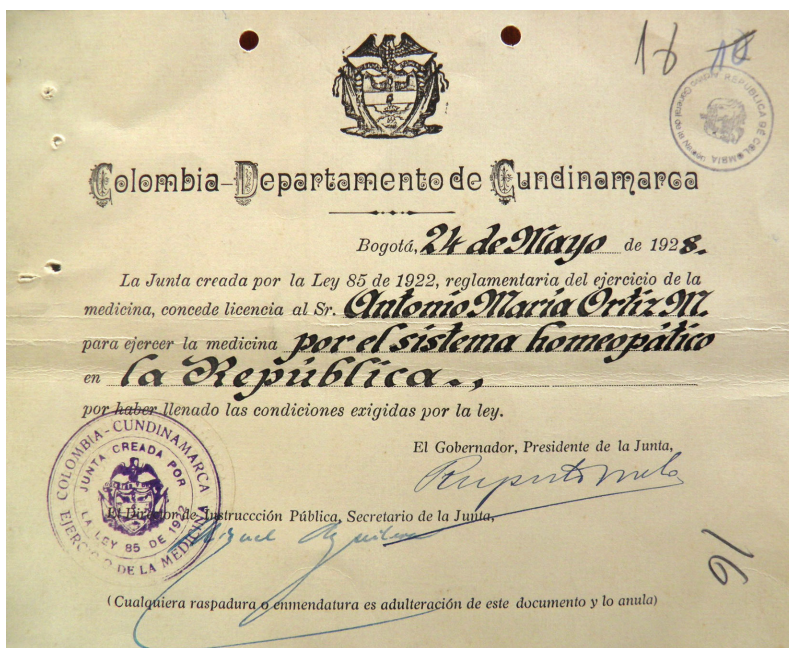 16 10
REPÚBLICA DE COLOMBIA
Colombia-Departamento de Cundinamarca
Bogotá, 24 de Mayo de 1928.
La Junta creada por la Ley 85 de 1922, reglamentaria del ejercicio de la
medicina, concede licencia al Sr. Antonio María Ortiz M.
para ejercer la medicina por el sistema homeopático
en la República.,
por haber llenado las condiciones exigidas por la ley.
El Gobernador, Presidente de la Junta,
COLOMBIA-CUNDINAMARCA
JUNTA CREADA POR
LA LEY 85 DE 1922
EJERCICIO DE LA MEDICINA
El Director de Instruccción Pública, Secretario de la Junta,
Miguel Aguilera
16
(Cualquiera raspadura o enmendatura es adulteración de este documento y lo anula)